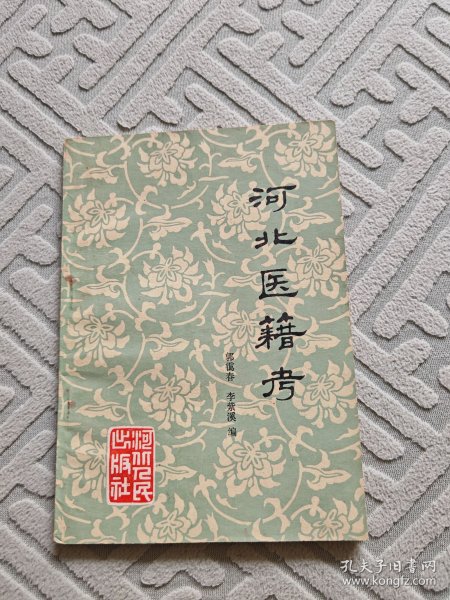 河北医籍考
郭霭春 李紫溪 编
河北人民
出版社
孔夫子旧书网
www.kongfz.com